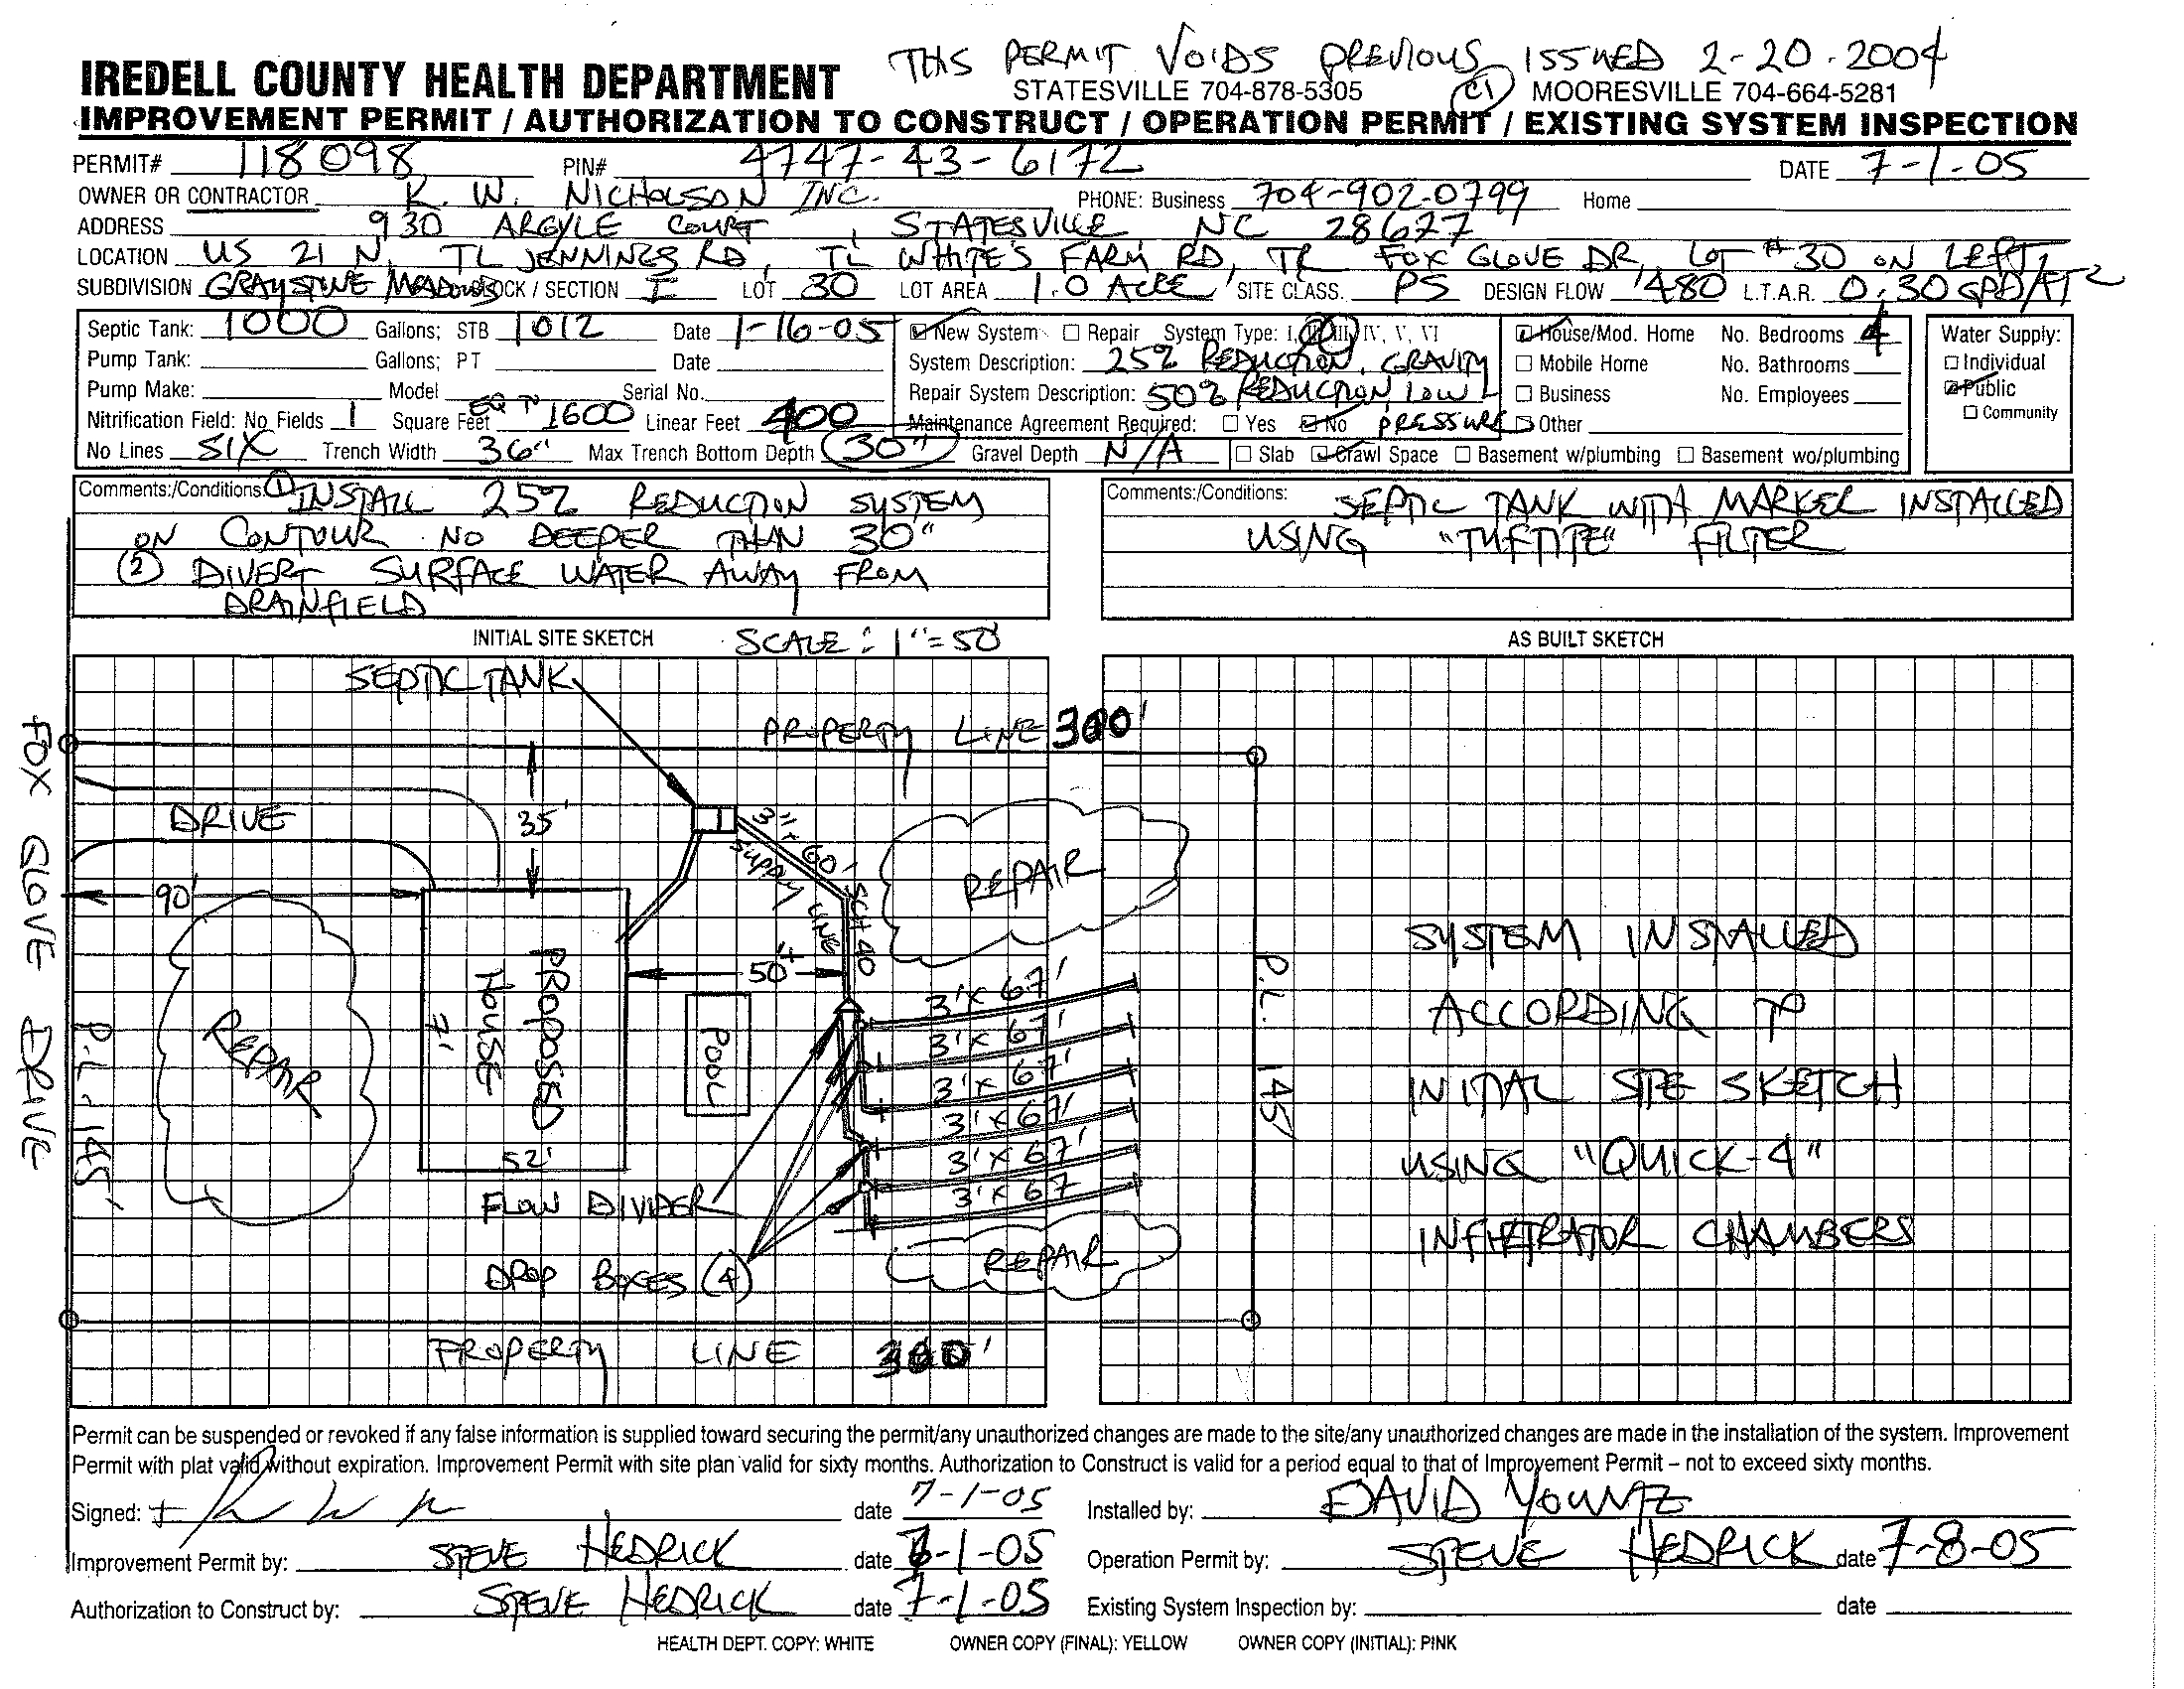 THIS PERMIT VOIDS PREVIOUS ISSUED 2-20-2004
IREDELL COUNTY HEALTH DEPARTMENT STATESVILLE 704-878-5305 MOORESVILLE 704-664-5281
IMPROVEMENT PERMIT / AUTHORIZATION TO CONSTRUCT / OPERATION PERMIT / EXISTING SYSTEM INSPECTION
PERMIT# 118098 PIN# 4747-43-6172 DATE 7-1-05
OWNER OR CONTRACTOR K. W. NICHOLSON INC. PHONE: Business 704-902-0799 Home
ADDRESS 930 ARGYLE COURT, STATESVILLE NC 28677
LOCATION US 21 N, TL JENNINGS RD, TL WHITE'S FARM RD, TR FOX GLOVE DR, LOT #30 ON LEFT
SUBDIVISION GRAYSTONE MEADOWS BLOCK / SECTION I LOT 30 LOT AREA 1.0 ACRE SITE CLASS. PS DESIGN FLOW 480 L.T.A.R. 0.30 GPD/FT2
Septic Tank: 1000 Gallons; STB 1012 Date 1-16-05 New System Repair System Type: I, II, III, IV, V, VI House/Mod. Home No. Bedrooms 4 Water Supply:
Pump Tank: Gallons; PT Date System Description: 25% REDUCTION, GRAVITY Mobile Home No. Bathrooms Individual
Pump Make: Model Serial No. Repair System Description: 50% REDUCTION, LOW Business No. Employees Public
Nitrification Field: No Fields 1 Square Feet EQ TO 1600 Linear Feet 400 Maintenance Agreement Required: Yes No PRESSURE Other Community
No Lines SIX Trench Width 36" Max Trench Bottom Depth 30" Gravel Depth N/A Slab Crawl Space Basement w/plumbing Basement wo/plumbing
Comments:/Conditions: ① INSTALL 25% REDUCTION SYSTEM
ON CONTOUR NO DEEPER THAN 30"
② DIVERT SURFACE WATER AWAY FROM
DRAINFIELD
Comments:/Conditions: SEPTIC TANK WITH MARKER INSTALLED
USING "TUFTITE" FILTER
INITIAL SITE SKETCH SCALE: 1"=50'
AS BUILT SKETCH
SEPTIC TANK
PROPERTY LINE 300'
FOX GLOVE DRIVE
DRIVE
35'
3" x 60' SCH 40
SUPPLY LINE
REPAIR
90'
REPAIR
PROPOSED
HOUSE
71'
52'
50'+
POOL
3'x 67'
3'x 67'
3'x 67'
3'x 67'
3'x 67'
3'x 67
P.L. 145'
P.L. 145'
FLOW DIVIDER
DROP BOXES (4)
REPAIR
PROPERTY LINE 300'
SYSTEM INSTALLED
ACCORDING TO
INITIAL SITE SKETCH
USING "QUICK-4"
INFILTRATOR CHAMBERS
Permit can be suspended or revoked if any false information is supplied toward securing the permit/any unauthorized changes are made to the site/any unauthorized changes are made in the installation of the system. Improvement
Permit with plat valid without expiration. Improvement Permit with site plan valid for sixty months. Authorization to Construct is valid for a period equal to that of Improvement Permit – not to exceed sixty months.
Signed: date 7-1-05 Installed by: DAVID YOUNTZ
Improvement Permit by: STEVE HEDRICK date 7-1-05 Operation Permit by: STEVE HEDRICK date 7-8-05
Authorization to Construct by: STEVE HEDRICK date 7-1-05 Existing System Inspection by: date
HEALTH DEPT. COPY: WHITE OWNER COPY (FINAL): YELLOW OWNER COPY (INITIAL): PINK